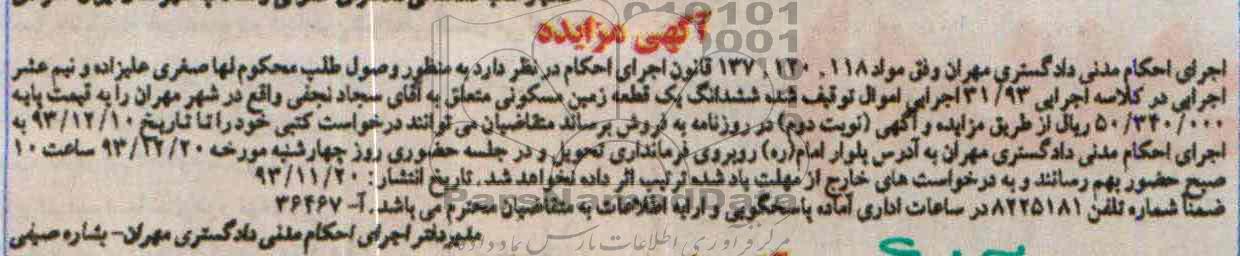 آگهی مزایده
اجرای احکام مدنی دادگستری مهران وفق مواد ۱۱۸، ۱۲۰، ۱۳۷ قانون اجرای احکام در نظر دارد به منظور وصول طلب محکوم لها صغری علیزاده و نیم عشر
اجرایی در کلاسه اجرایی ۳۱/۹۳ اجرایی اموال توقیف شده ششدانگ یک قطعه زمین مسکونی متعلق به آقای سجاد نجفی واقع در شهر مهران را به قیمت پایه
۵۰/۳۴۰/۰۰۰ ریال از طریق مزایده و آگهی (نوبت دوم) در روزنامه به فروش برساند متقاضیان می توانند درخواست کتبی خود را تا تاریخ ۹۳/۱۲/۱۰ به
اجرای احکام مدنی دادگستری مهران به آدرس بلوار امام(ره) روبروی فرمانداری تحویل و در جلسه حضوری روز چهارشنبه مورخه ۹۳/۱۲/۲۰ ساعت ۱۰
صبح حضور بهم رسانند و به درخواست های خارج از مهلت یاد شده ترتیب اثر داده نخواهد شد. تاریخ انتشار: ۹۳/۱۱/۲۰
ضمنا شماره تلفن ۸۲۲۵۱۸۱ در ساعات اداری آماده پاسخگویی و ارایه اطلاعات به متقاضیان محترم می باشد. آ- ۳۶۴۶۷
مدیر دفتر اجرای احکام مدنی دادگستری مهران- بشاره صیفی